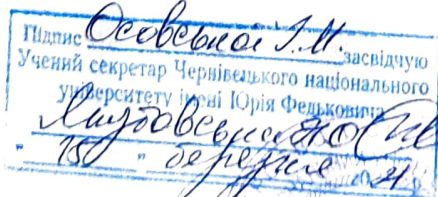 Підпис Осовської І.М. засвідчую
Учений секретар Чернівецького національного
університету імені Юрія Федьковича
" 15 " березня 2021 р.